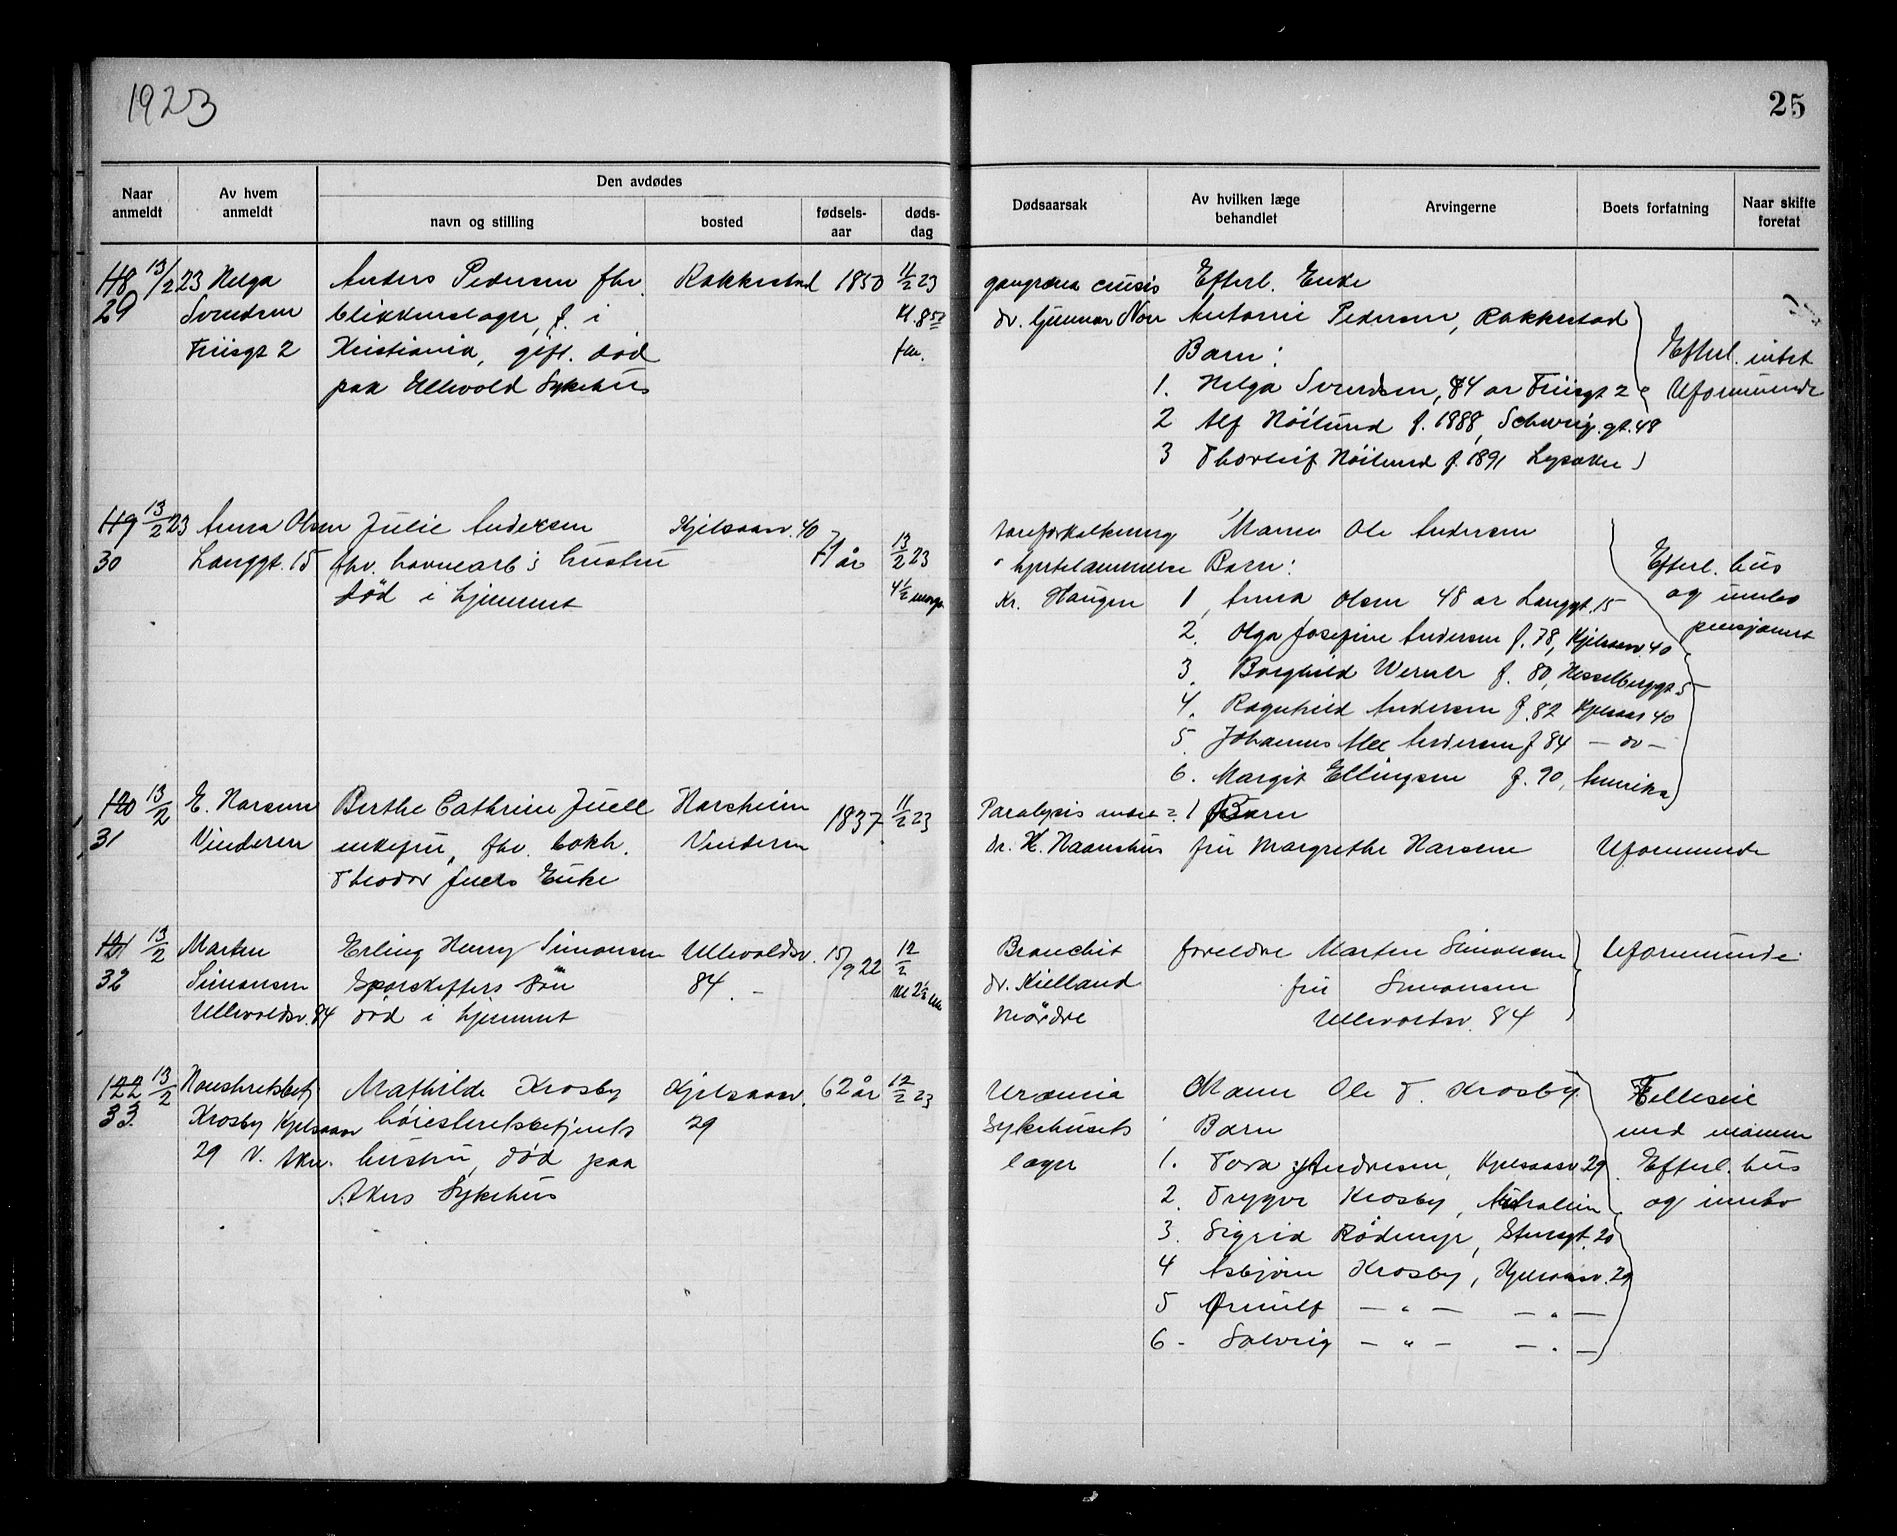 1923
25
Naar anmeldt
Av hvem anmeldt
Den avdødes
navn og stilling
bosted
fødsels-aar
døds-dag
Dødsaarsak
Av hvilken læge behandlet
Arvingerne
Boets forfatning
Naar skifte foretat
118 13/2 23 Helga Anders Pedersen fhv. Rakkestad 1850 11/2 23
29 Svendsen blikkenslager, f. i kl. 8 50
Friisgt 2 Kristiania, gift. død fm.
paa Ullevold Sykehus
gangræna cruris Efterl. Enke
dr. Gunnar Nor Antonie Pedersen, Rakkestad
Barn: Efterl. intet
1. Helga Svendsen, 44 ar Friisgt 2 Uformuende
2 Alf Höilund f. 1888, Schweig.gt. 48
3 Thorleif Höilund f. 1891 Lysaker
119 13/2 23 Anna Olsen Julie Andersen Kjelsaasv. 40 71 år 13/2 23
30 Langgt. 15 fhv. havnearb's hustru
død i hjemmet 4 1/2 morg.
Aareforkalkning Mann Ole Andersen
" hjertelammelse Barn: Efterl. hus
Kr. Haugen 1, Anna Olsen 48 ar Langgt. 15 og innbo
2. Olga Josefine Andersen f. 78, Kjelsaasv. 40 pensjonert
3. Borghild Werner f. 80, Hesselberggt. 5
4. Ragnhild Andersen f. 82 Kjelsaas 40
5. Johannes Alex Andersen f 84 – do –
6. Margit Ellingsen f. 90, Amerika
120 13/2 E. Harsem Berthe Cathrine Juell Harsheim 1837 11/2 23
31 Vinderen enkefru, fhv. bokh. Vinderen
Theodor Juels Enke
Paralysis 1 Barn
Dr. H. fru Margrethe Harsem Uformuende
121 13/2 Marten Erling Henry Simonsen Ullevoldsv. 15/9 22 12/2
32 Simonsen Sporskifters Sön 84. – kl 2 1/2
Ullevoldsv. 84 død i hjemmet
Bronchit foreldre Marten Simonsen Uformuende
dr. Kielland fru Simonsen
Mördre Ullevoldsv. 84
122 13/2 Mathilde Krosby Kjelsaasv. 62 år 12/2 23
33. Krosby Kjelsaasv höiesteretsbetjents 29
29 V. Aker. hustru, død paa
Akers Sykehus
Uræmia Mann Ole T. Krosby. Felleseie
Sykehusets Barn med mannen
læger 1. Tora Andresen, Kjelsaasv. 29 Efterl. hus
2. Trygve Krosby, Australien og innbo
3. Sigrid Rödemyr, Stensgt. 20
4 Asbjörn Krosby, Kjelsaasv. 29
5 Ørnulf – " – – " –
6 - Solveig – " – – " –